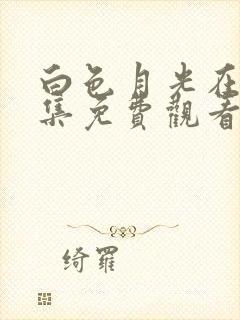 白色月光在
集免費觀看
绮羅